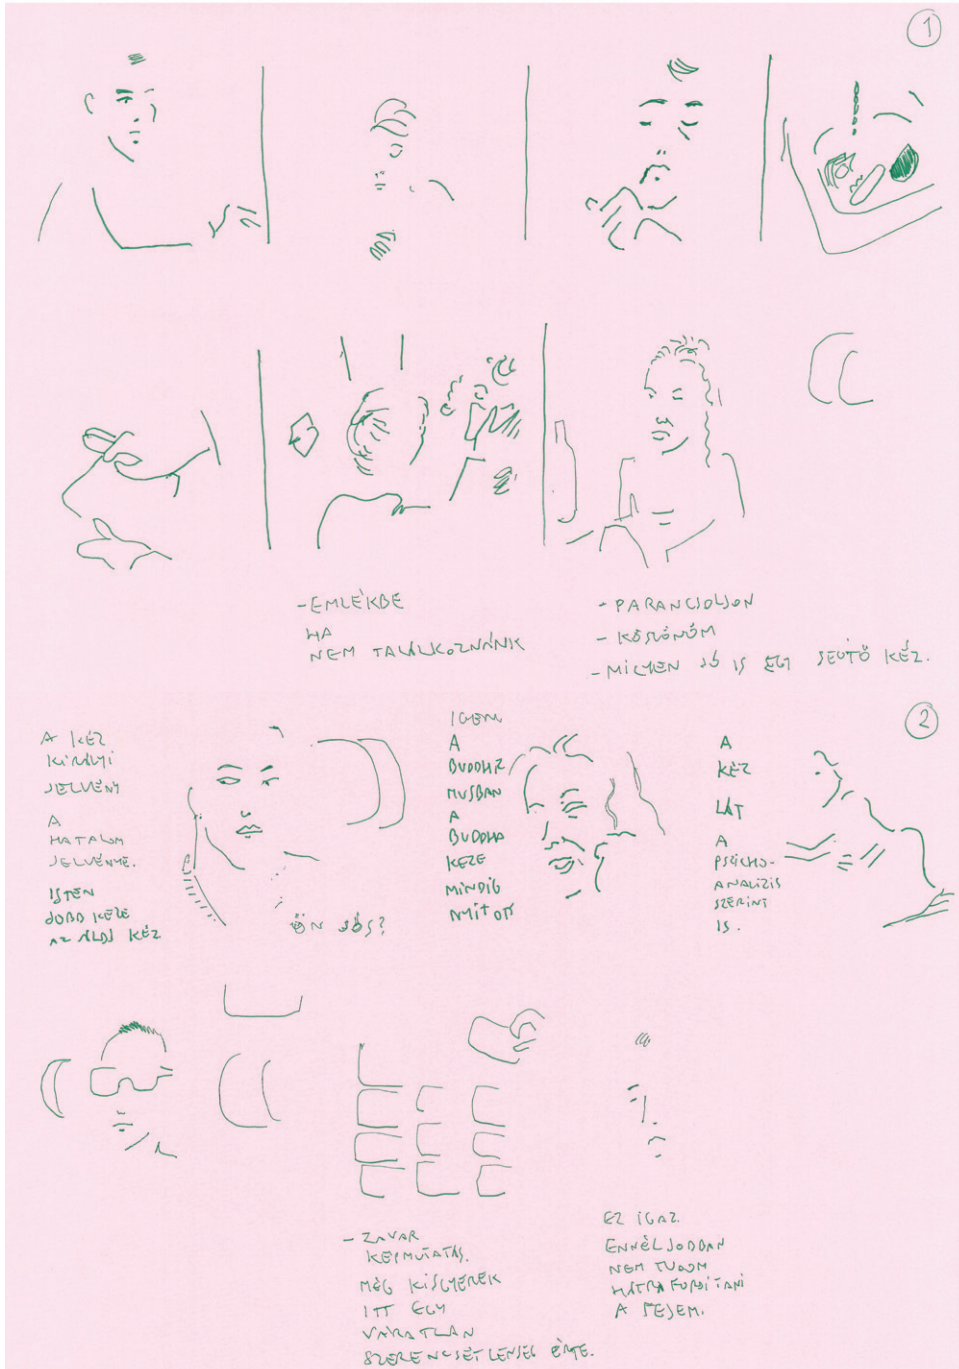 1
- EMLÉKBE
HA
NEM TALÁLKOZNÁNK
- PARANCSOLJON
- KÖSZÖNÖM
- MILYEN JÓ IS EGY SEGÍTŐ KÉZ.
2
A KÉZ
KIRÁLYI
JELVÉNY
A
HATALOM
JELVÉNYE.
ISTEN
JOBB KEZE
AZ ÁLDÓ KÉZ
ÖN JÓS?
IGEN
A
BUDDHIZ
MUSBAN
A
BUDDHA
KEZE
MINDIG
NYITOTT
A
KÉZ
LÁT
A
PSZICHO-
ANALIZIS
SZERINT
IS.
- ZAVAR
KÉPMUTATÁS.
MÉG KISGYEREK
ITT EGY
VÁRATLAN
SZERENCSÉTLENSÉG ÉRTE.
EZ IGAZ.
ENNÉL JOBBAN
NEM TUDOM
HÁTRAFORDÍTANI
A FEJEM.